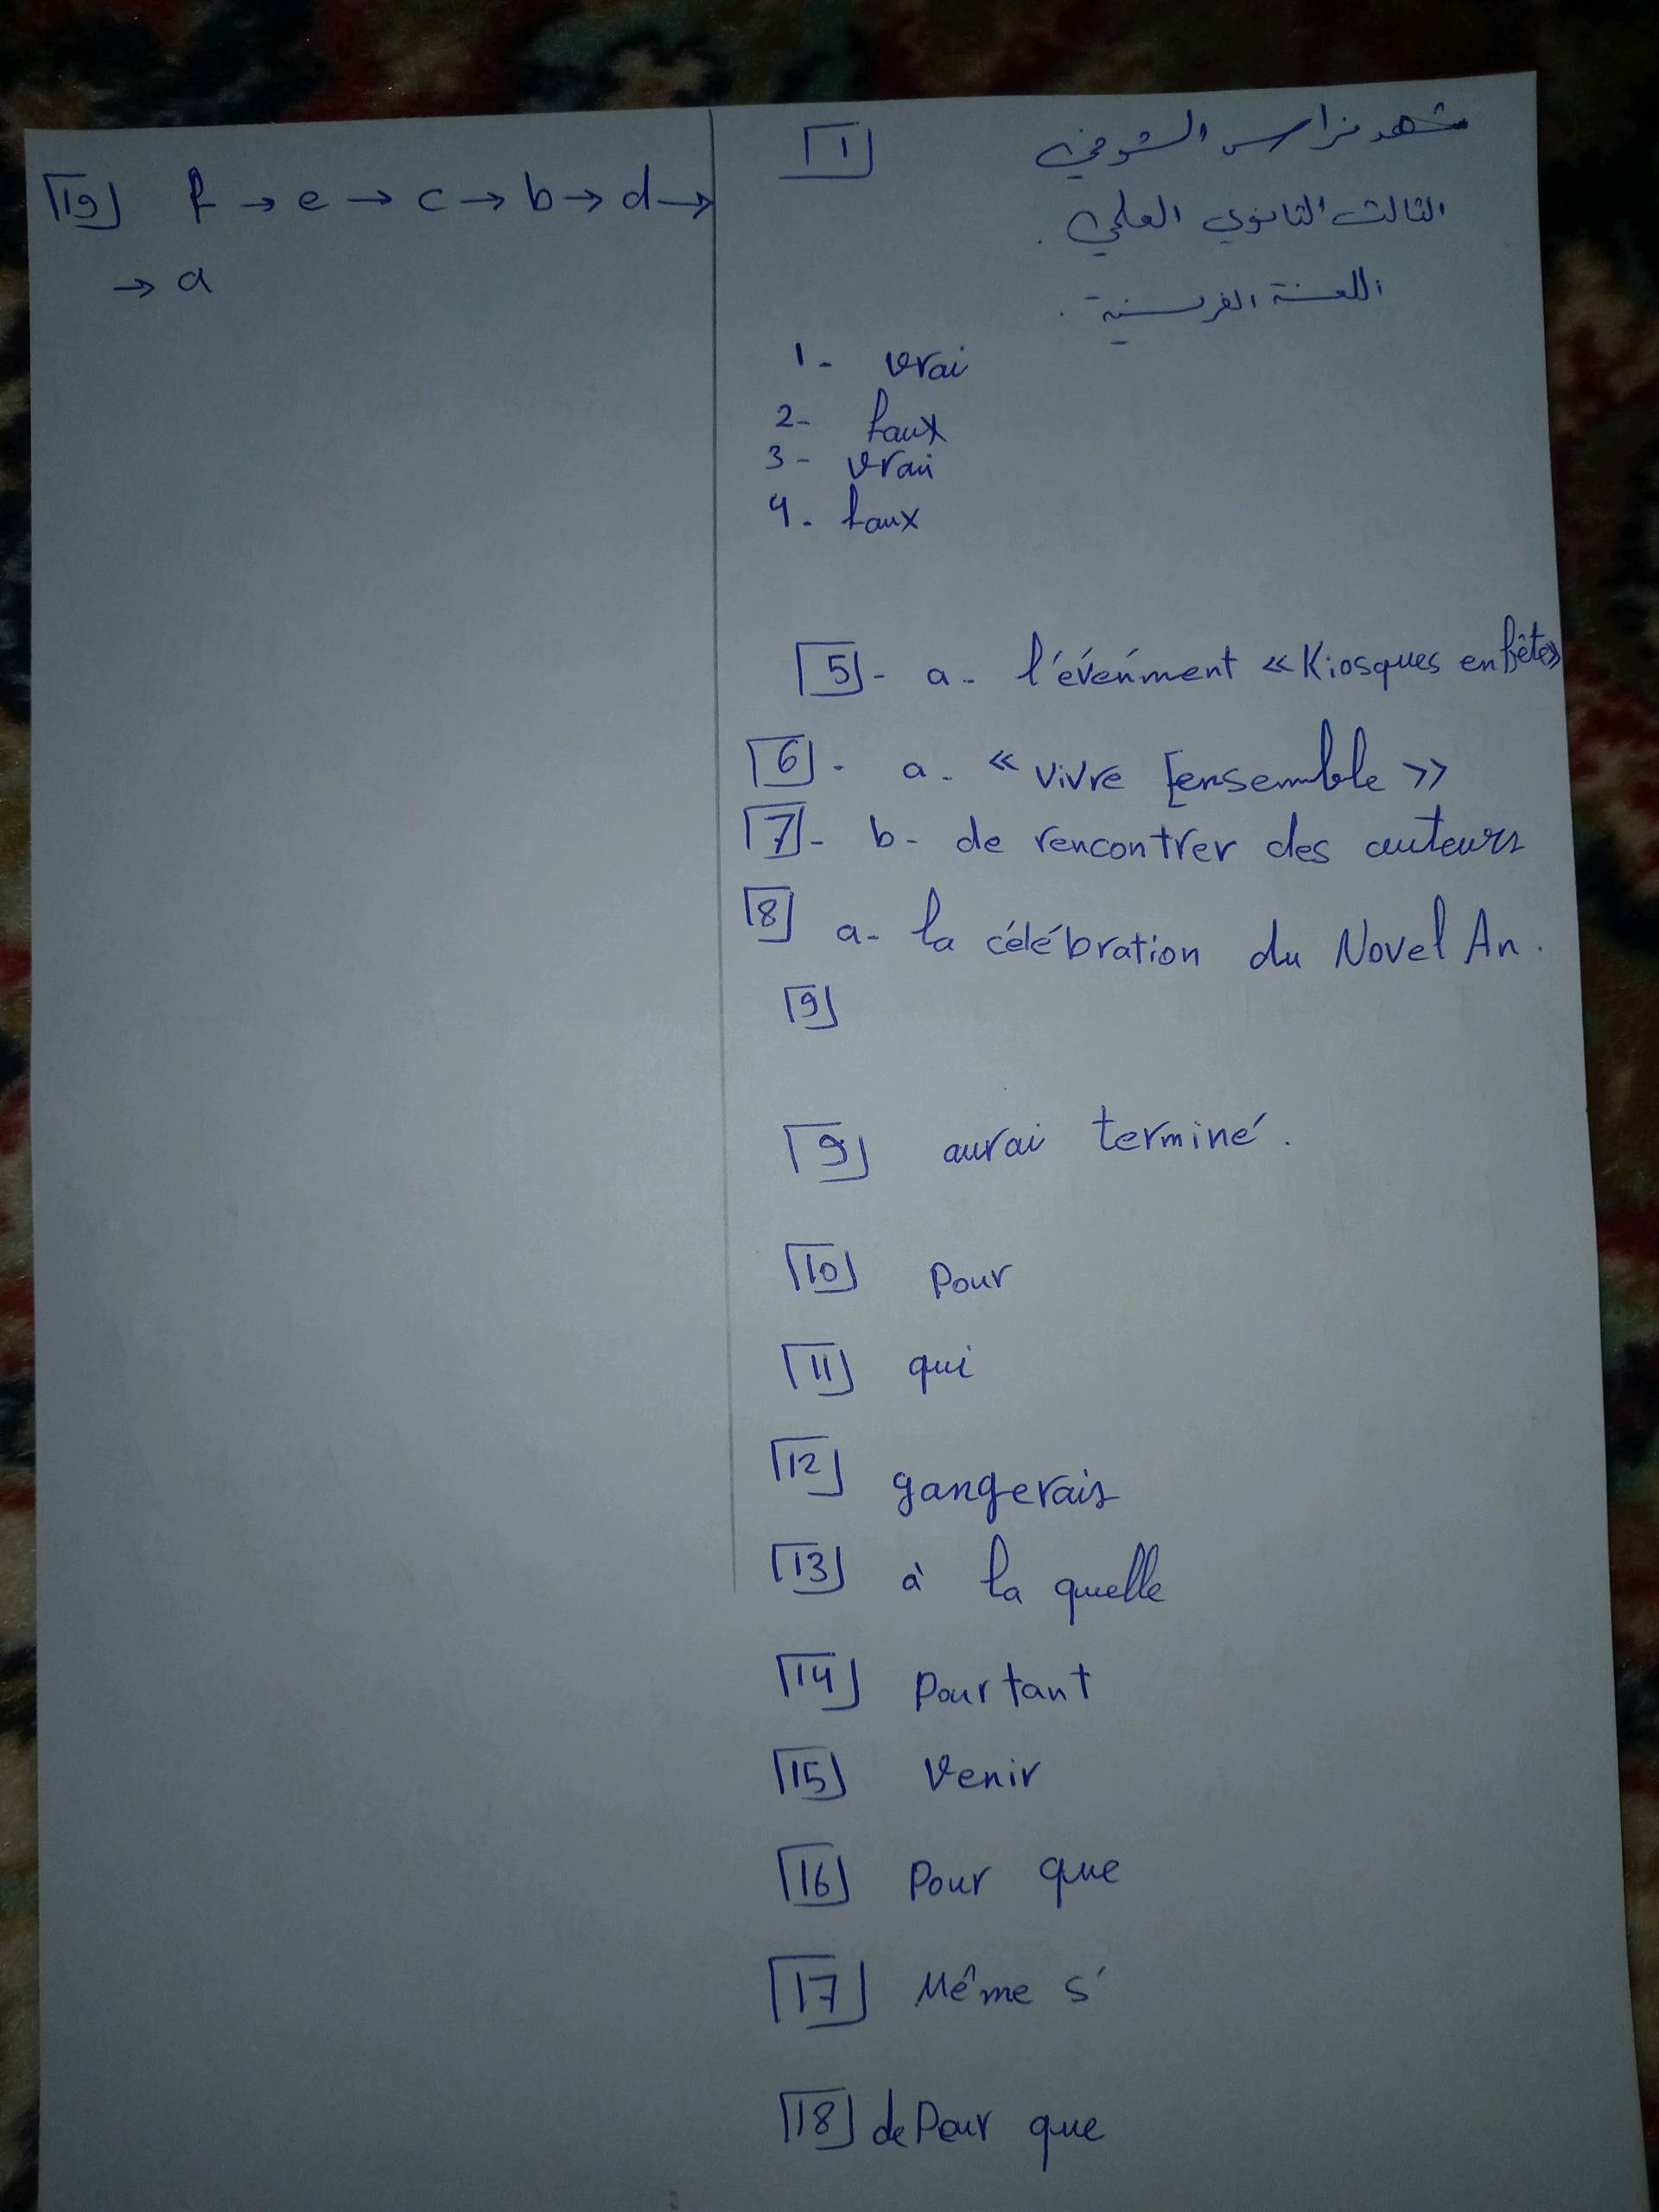 1
شهد نزار الشوفي
الثالث الثانوي العلمي.
اللغة الفرنسية.
1- vrai
2- faux
3- vrai
4- faux
5- a- l'événment «Kiosques en fête»
6- a- «vivre ensemble»
7- b- de rencontrer des auteurs
8 a- la célébration du Novel An.
9
9 aurai terminé.
10 Pour
11 qui
12 gangerais
13 à la quelle
14 Pourtant
15 Venir
16 Pour que
17 Même s'
18 de Peur que
19 f → e → c → b → d →
→ a